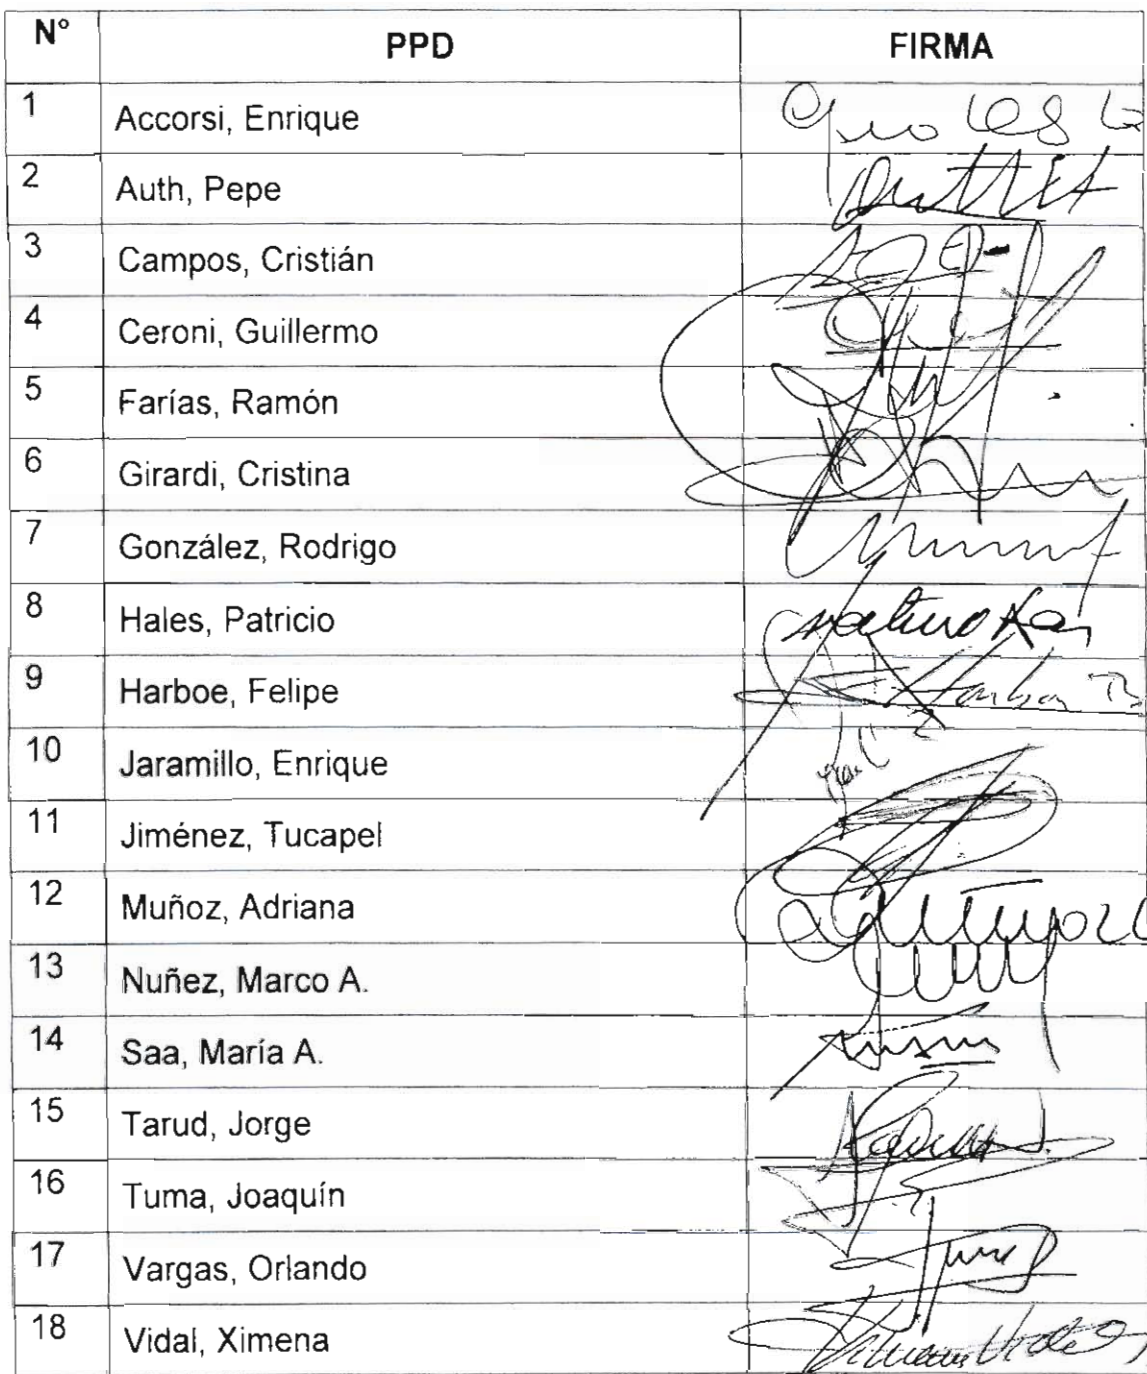 N° PPD FIRMA
1 Accorsi, Enrique
2 Auth, Pepe
3 Campos, Cristián
4 Ceroni, Guillermo
5 Farías, Ramón
6 Girardi, Cristina
7 González, Rodrigo
8 Hales, Patricio
9 Harboe, Felipe
10 Jaramillo, Enrique
11 Jiménez, Tucapel
12 Muñoz, Adriana
13 Nuñez, Marco A.
14 Saa, María A.
15 Tarud, Jorge
16 Tuma, Joaquín
17 Vargas, Orlando
18 Vidal, Ximena